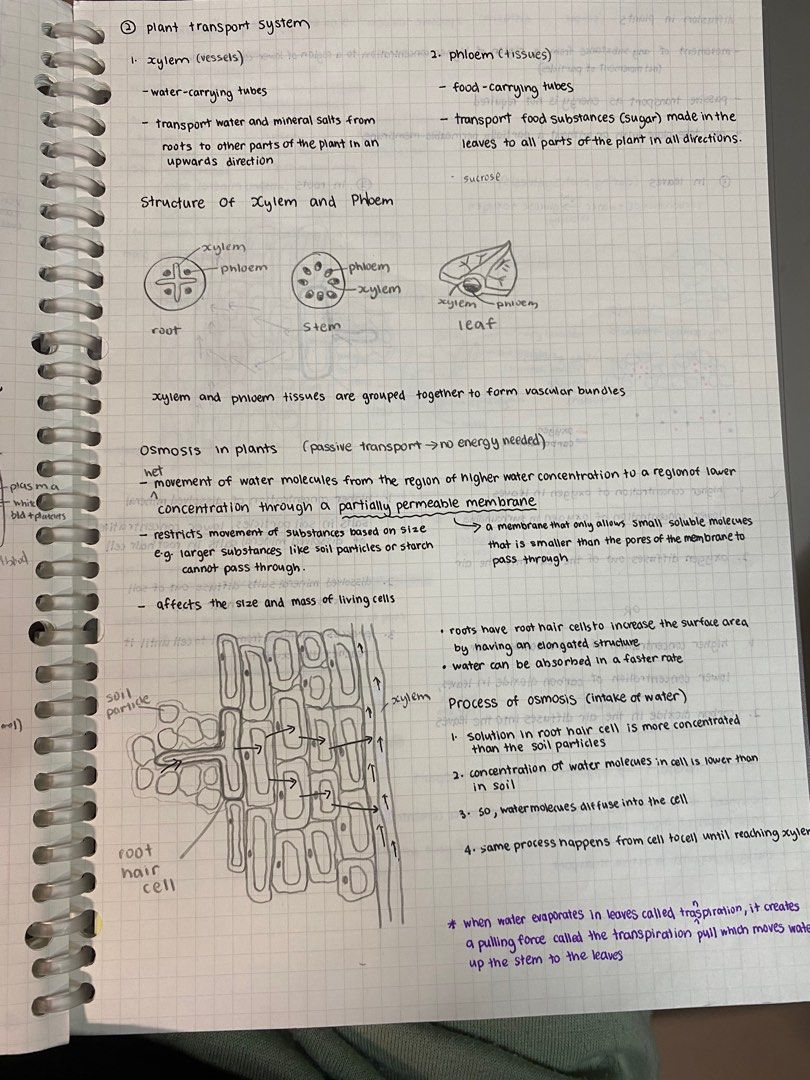 ② plant transport system
1. xylem (vessels)
- water-carrying tubes
- transport water and mineral salts from
roots to other parts of the plant in an
upwards direction
2. phloem (tissues)
- food-carrying tubes
- transport food substances (sugar) made in the
leaves to all parts of the plant in all directions.
- sucrose
Structure of Xylem and Phloem
xylem
phloem
root
phloem
xylem
stem
xylem
phloem
leaf
xylem and phloem tissues are grouped together to form vascular bundles
Osmosis in plants (passive transport → no energy needed)
net
- movement of water molecules from the region of higher water concentration to a region of lower
concentration through a partially permeable membrane
- restricts movement of substances based on size
e.g. larger substances like soil particles or starch
cannot pass through.
→ a membrane that only allows small soluble molecules
that is smaller than the pores of the membrane to
pass through
- affects the size and mass of living cells
soil
particle
xylem
root
hair
cell
• roots have root hair cells to increase the surface area
by having an elongated structure
• water can be absorbed in a faster rate
Process of osmosis (intake of water)
1. solution in root hair cell is more concentrated
than the soil particles
2. concentration of water molecules in cell is lower than
in soil
3. so, water molecules diffuse into the cell
4. same process happens from cell to cell until reaching xylem
* when water evaporates in leaves called transpiration, it creates
a pulling force called the transpiration pull which moves water
up the stem to the leaves
plasma
white
bld + platelets